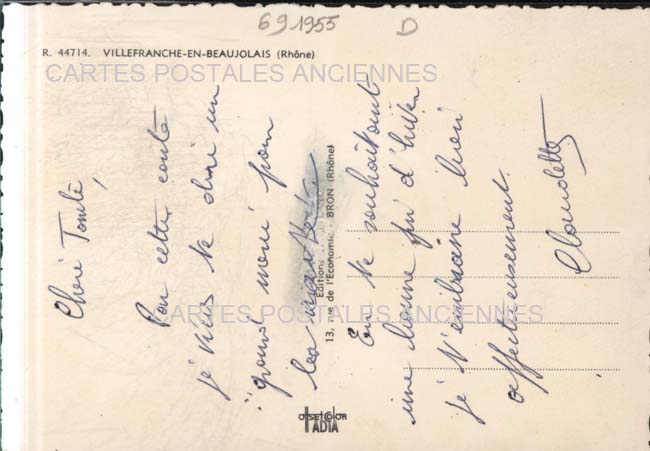 69 1955 D
R. 44714. VILLEFRANCHE-EN-BEAUJOLAIS (Rhône)
CARTES POSTALES ANCIENNES
Cheri Tonté,
Par cette carte
je viens te dire un
"gros merci pour
les
En te souhaitant
une bonne fin d'hiver
je t'embrasse bien
affectueusement.
Claudette
Editions
13, rue de l'Economie - BRON (Rhône)
CARTES POSTALES ANCIENNES
OffSETCOLOR
ADIA